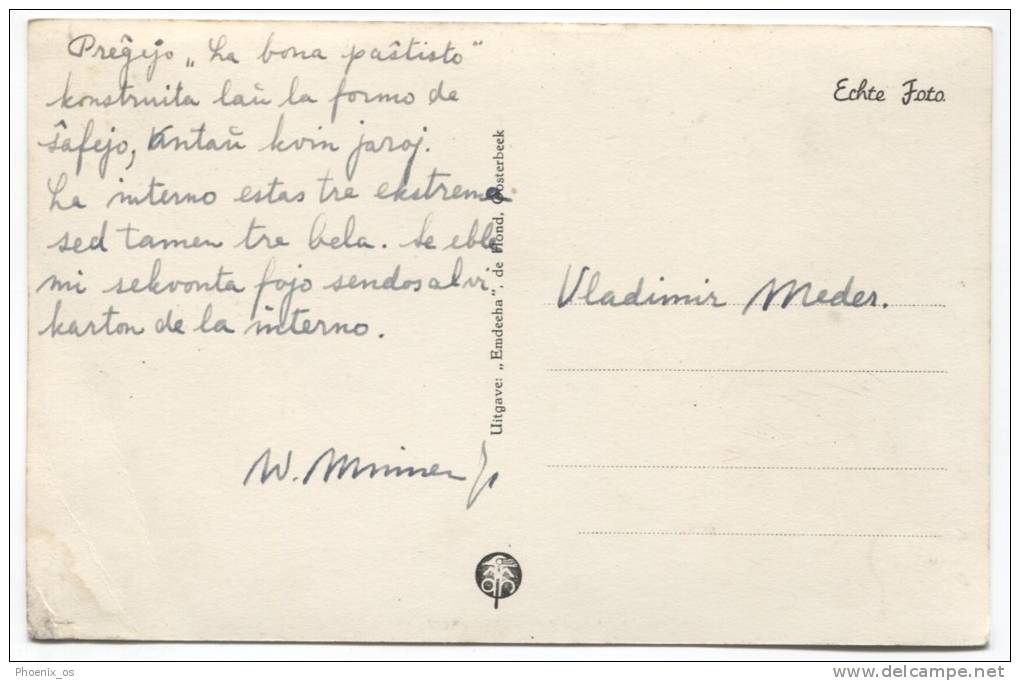 Preĝejo „La bona paŝtisto"
konstruita laŭ la formo de
ŝafejo, antaŭ kvin jaroj.
La interno estas tre ekstrema
sed tamen tre bela. Se eble
mi sekvonta fojo sendos al vi
karton de la interno.
W.
Uitgave: „Emdeeha", de Hond, Oosterbeek
Echte Foto.
Vladimir Meder.
Phoenix_os
www.delcampe.net